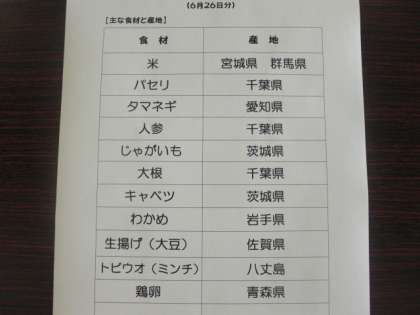 (6月26日分)
【主な食材と産地】
食 材 産 地
米 宮城県 群馬県
パセリ 千葉県
タマネギ 愛知県
人参 千葉県
じゃがいも 茨城県
大根 千葉県
キャベツ 茨城県
わかめ 岩手県
生揚げ(大豆) 佐賀県
トビウオ(ミンチ) 八丈島
鶏卵 青森県